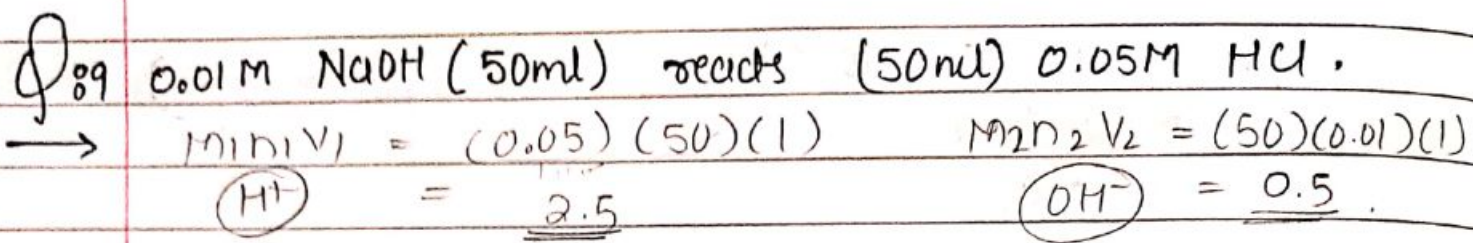 Q:9 0.01M NaOH (50ml) reacts (50ml) 0.05M HCl.
→ M1n1V1 = (0.05)(50)(1) M2n2V2 = (50)(0.01)(1)
H+ = 2.5 OH- = 0.5.